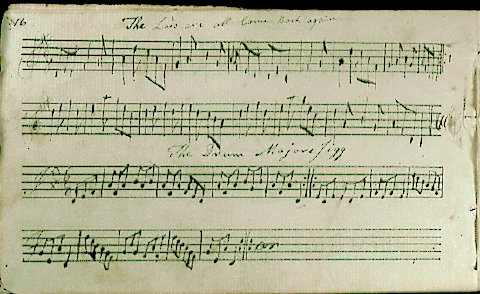 16 The Lads are all Come Back again
The Drum Majors Jigg